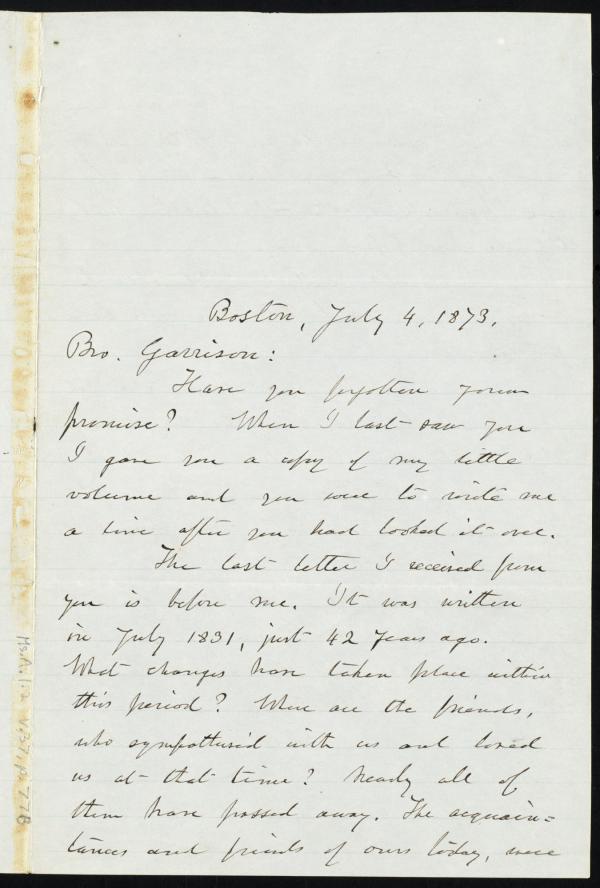 Boston, July 4, 1873.
Bro. Garrison:
Have you forgotten your
promise? When I last saw you
I gave you a copy of my little
volume and you were to write me
a line after you had looked it over.
The last letter I received from
you is before me. It was written
in July 1831, just 42 years ago.
What changes have taken place within
this period? Where are the friends,
who sympathised with us and loved
us at that time? Nearly all of
them have passed away. The acquain=
tances and friends of ours today, were
Ms.A.1.2 v.37, p.77B